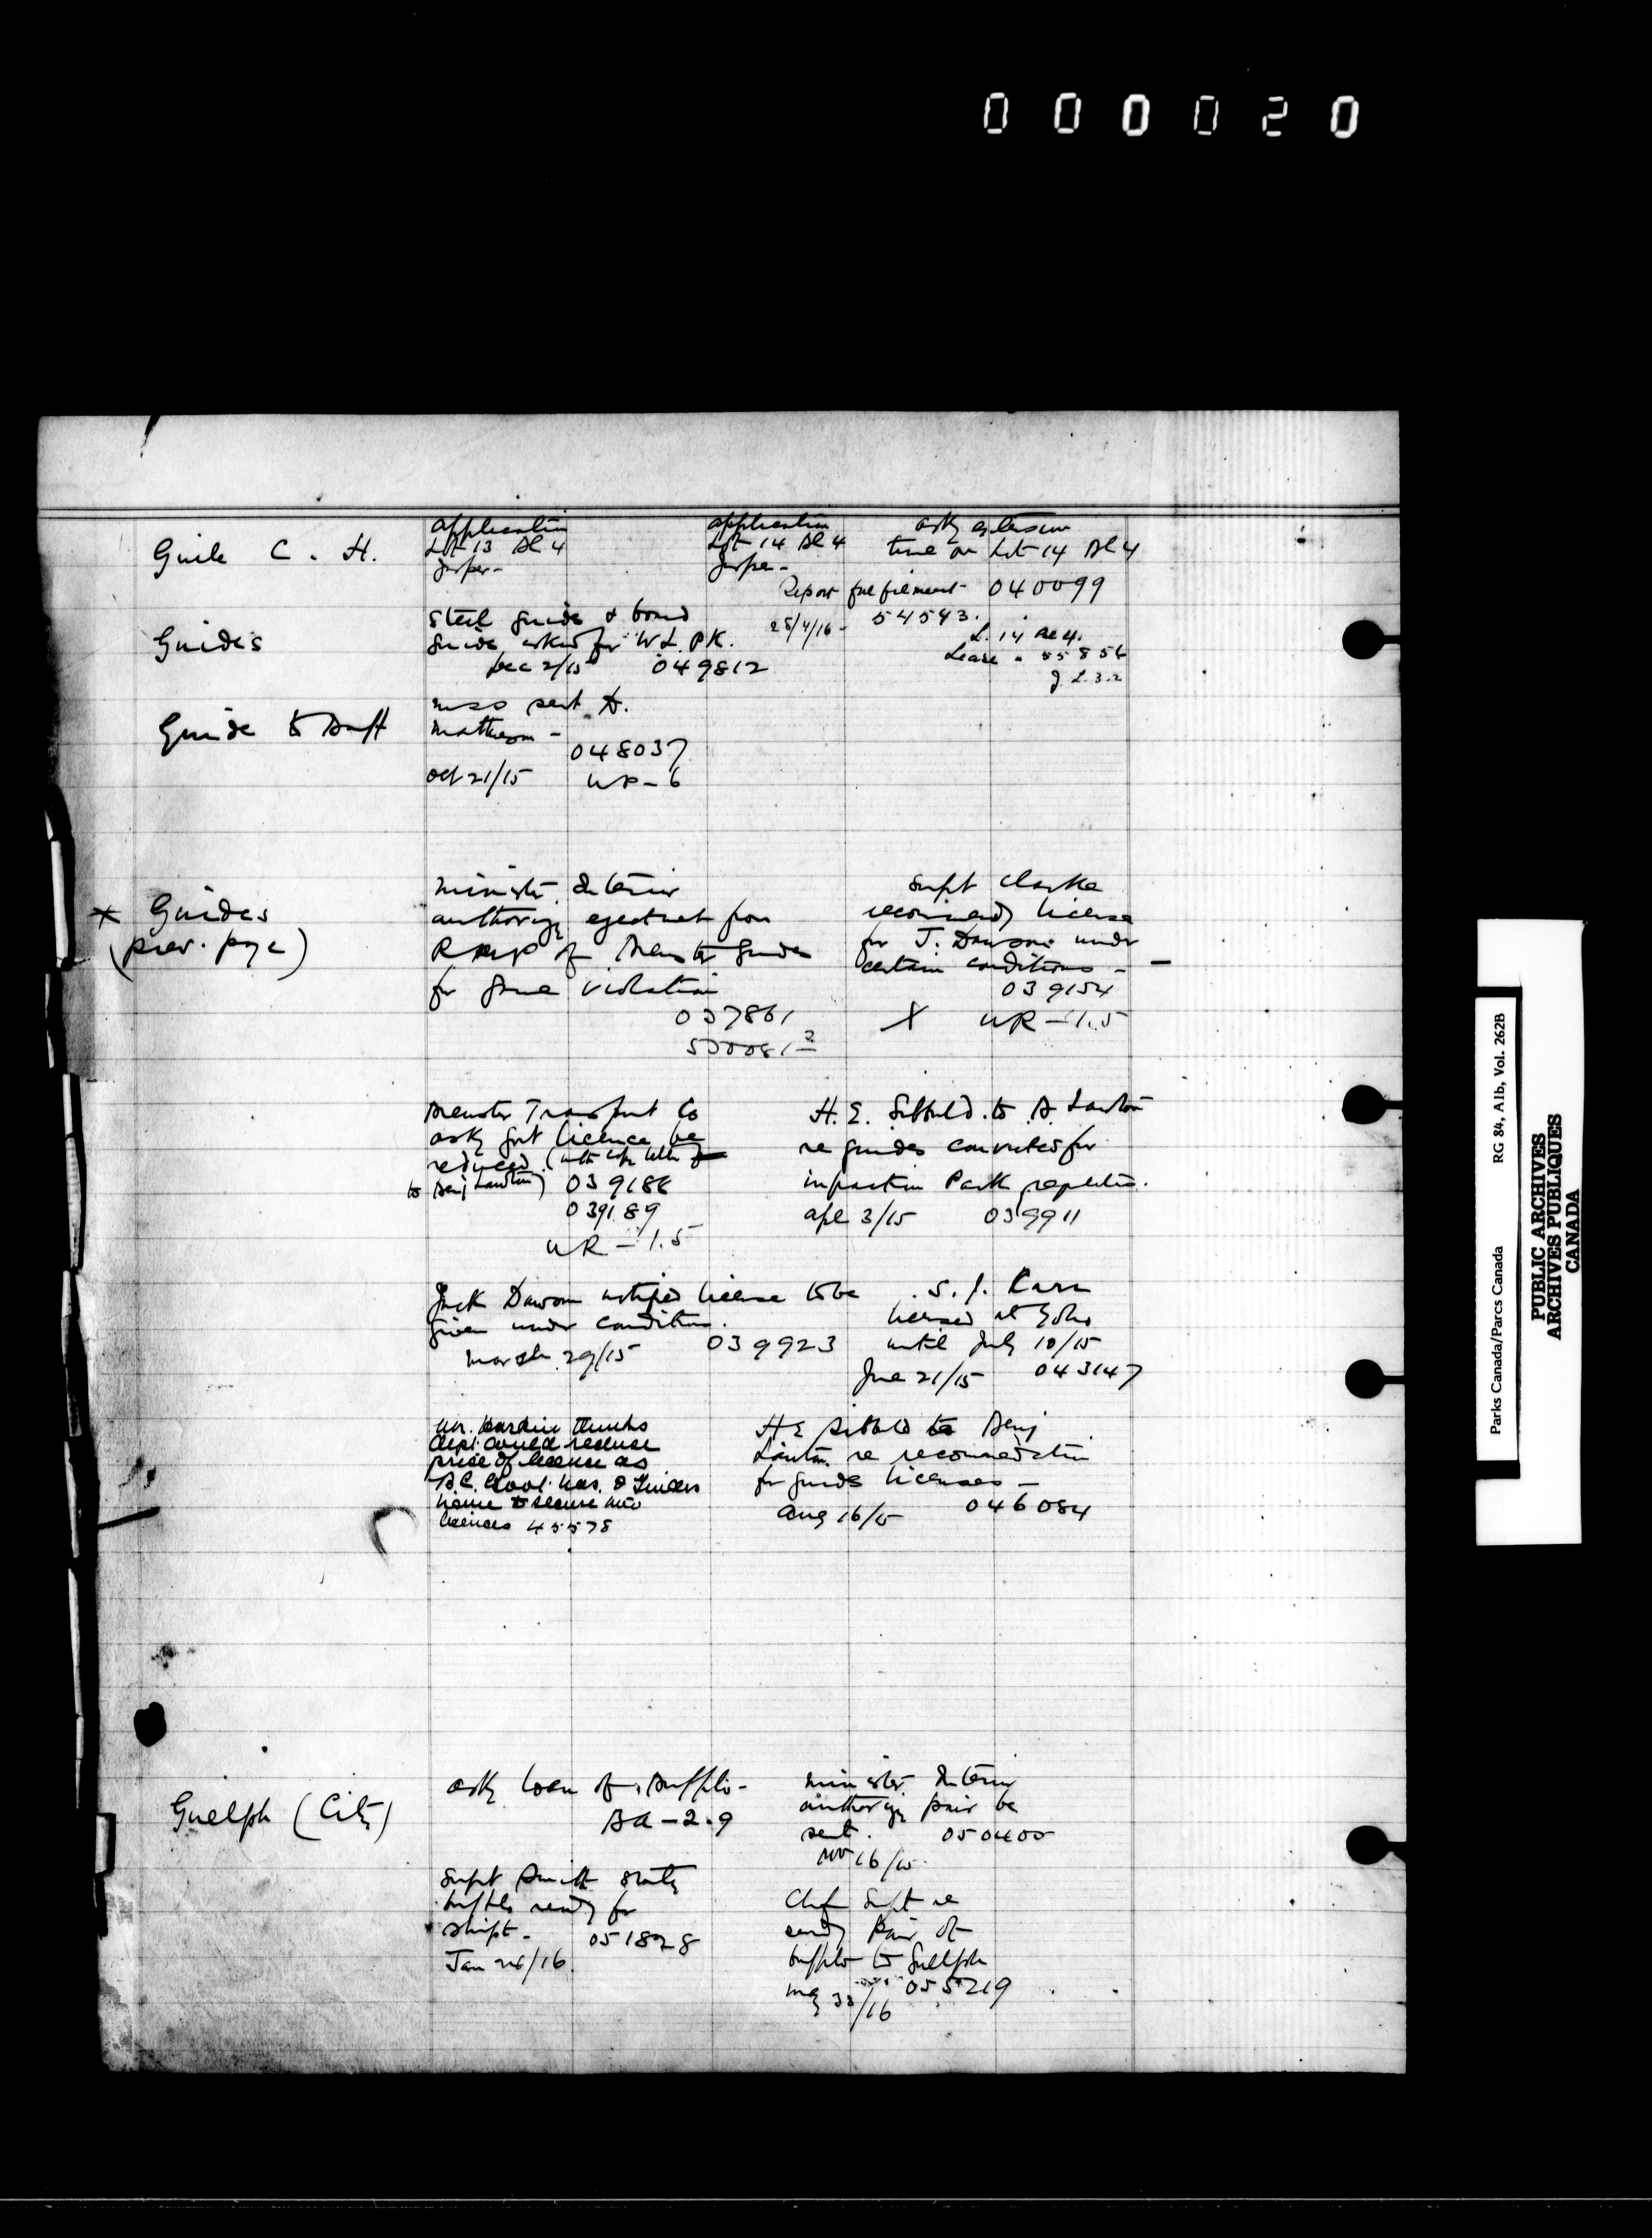 000020
Guile C. H.
application
Lot 13 Bl 4
Jasper-
application
Lot 14 Bl 4
Jasper-
ask extension
time on Lot 14 Bl 4
040099
Report fulfilment
28/4/16- 54543.
L. 14 Bl 4.
Lease - 55856
J. L. 3.2
Guides
Steel guide & bound
guide asked for W L. PK.
Dec 2/15 049812
Guide to Banff
mss sent
Matheson -
048037
Oct 21/15 UR-6
x Guides
(prev. page)
Minister Interior
authorizg ejectment from
of Brewster Guides
for game violation
037861
Supt Clarke
recommendg license
for J. Dawson under
certain conditions -
039154
X UR - 1.5
Brewster Transport Co
ask govt licence be
reduced.
to Benj Lawton) 039188
039189
UR - 1.5
H. E. Sibbald to B Lawton
re guides convicted for
infraction Park regulation.
Apl 3/15 039911
Jack Dawson notified license to be
given under condition.
March 29/15 039923
S. J.
licensed at Yoho
until July 10/15
June 21/15 043147
Mr. Hardie thinks
dept could reduce
price of licence as
B.C. Govt.
licences 45578
H E Sibbald to Benj
Lawton re recommendation
for guide licenses -
Aug 16/15 046084
Guelph (City)
ask loan of Buffalo-
Ba - 2.9
Minister Interior
authorizg pair be
sent. 050400
Nov 16/15
Supt Smith statg
buffalo ready for
shipt- 051828
Jan 26/16
Chf Supt re
sendg pair of
buffalo to Guelph
055219
/16
Parks Canada/Parcs Canada RG 84, A1b, Vol. 262B
PUBLIC ARCHIVES
ARCHIVES PUBLIQUES
CANADA